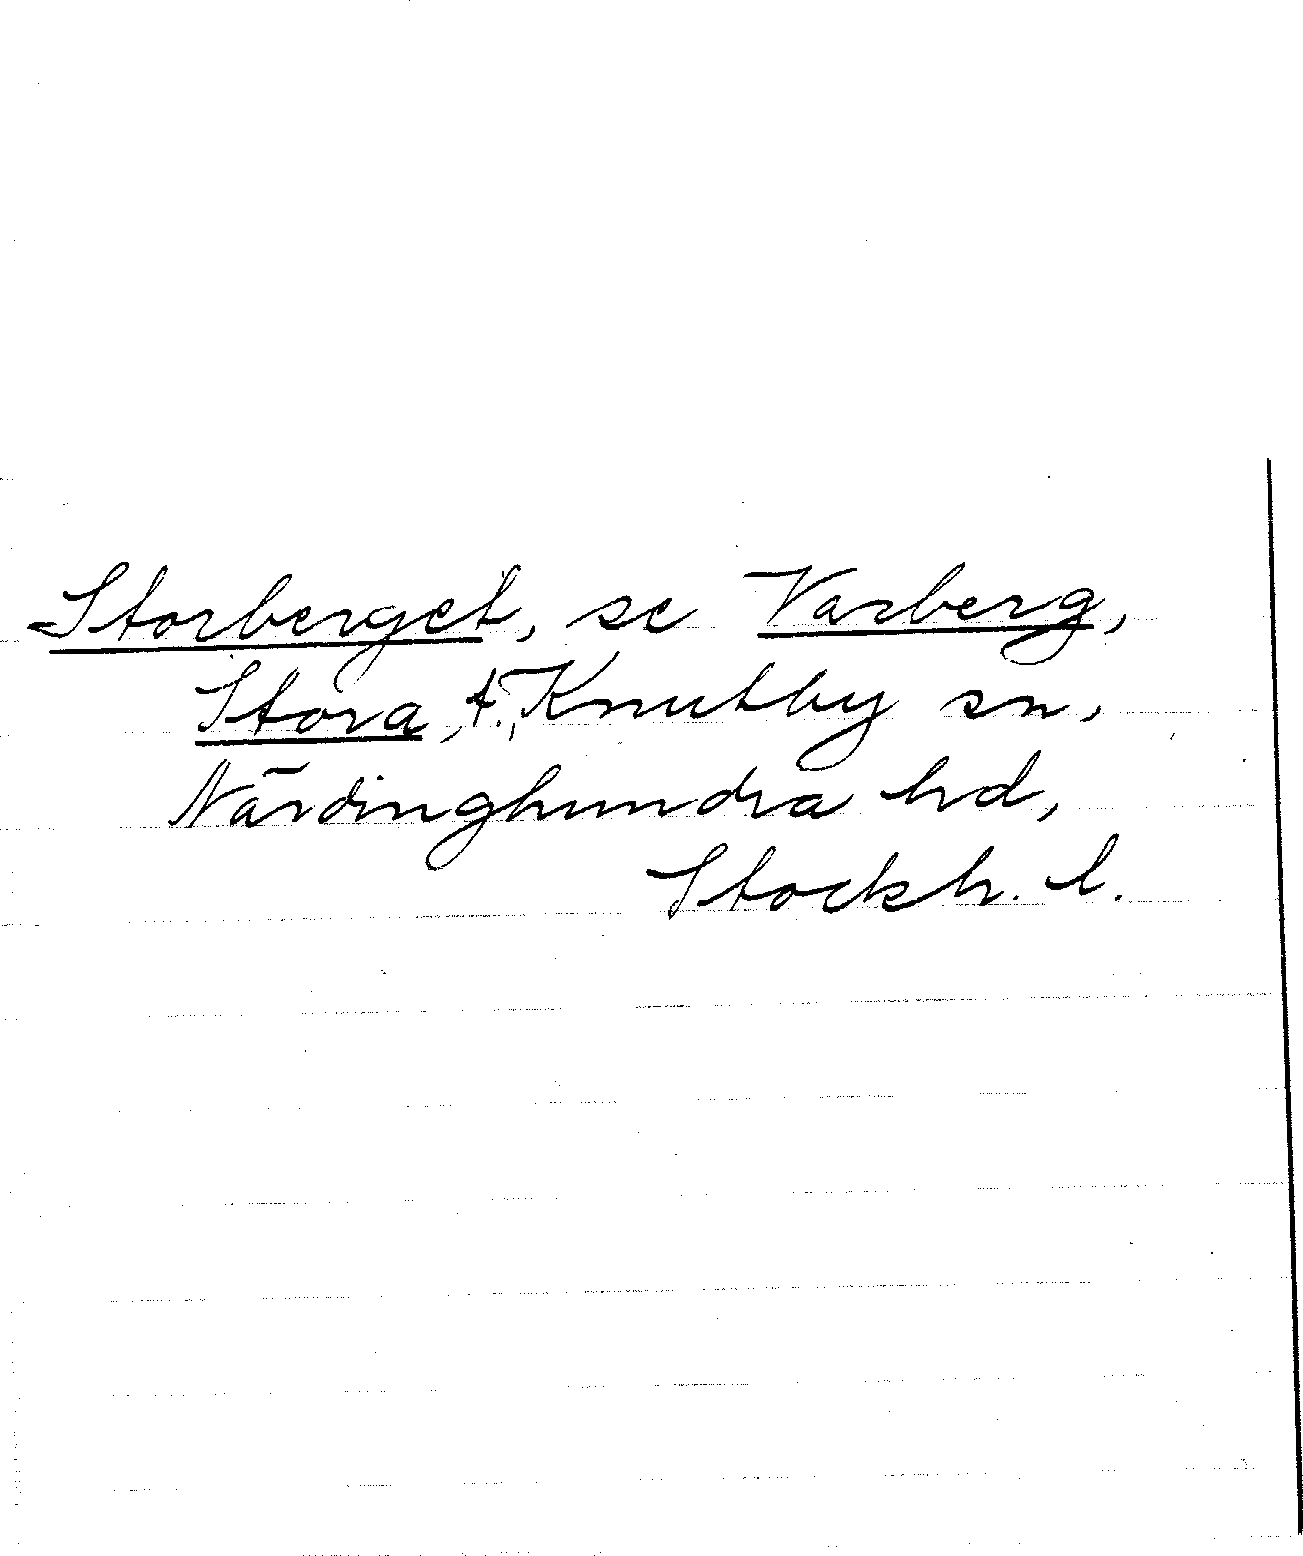 Storberget, se Varberg,
Stora, t., Knutby sn,
Närdinghundra hd,
Stockh. l.